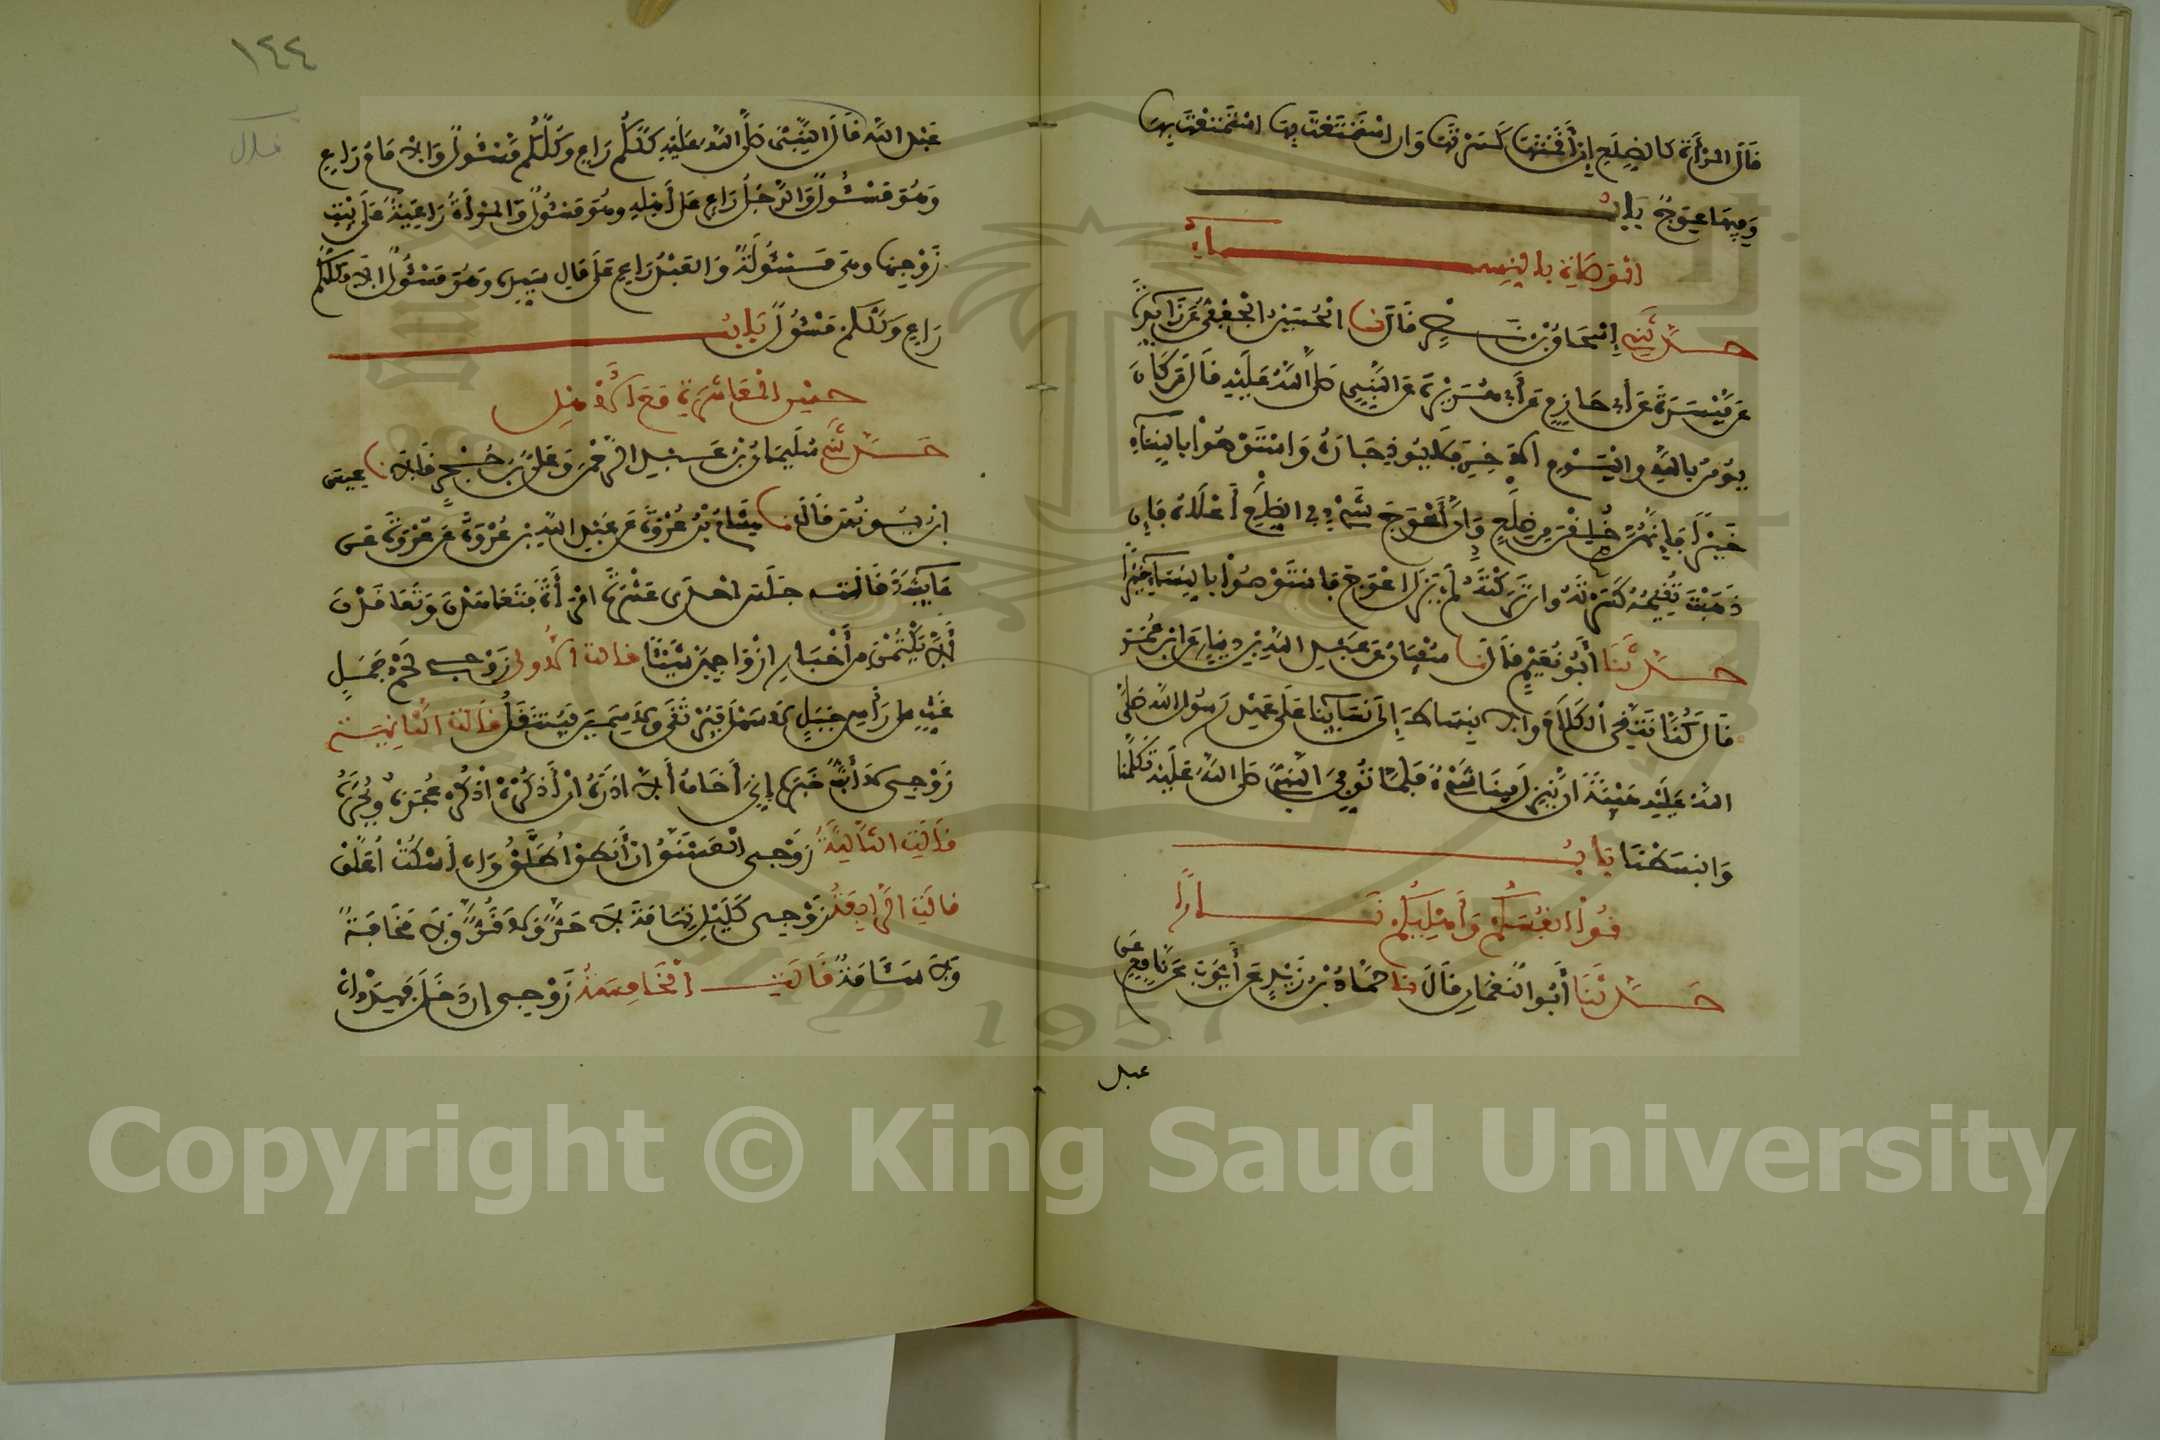 قَالَ المَرْأَةُ كَالضِّلَعِ إِنْ أَقَمْتَهَا كَسَرْتَهَا وَإِن اسْتَمْتَعْتَ بِهَا اسْتَمْتَعْتَ بِهَا
وَفِيهَا عِوَجٌ بَابُ
الوَصَاةِ بِالنِّسَاءِ
حَدَّثَنِي إِسْحَاقُ بْنُ نَصْرٍ قَالَ نا الْحُسَيْنُ الْجُعْفِيُّ عَنْ زَائِدَةَ
عَنْ مَيْسَرَةَ عَنْ أَبِي حَازِمٍ عَنْ أَبِي هُرَيْرَةَ عَنِ النَّبِيِّ صَلَّى اللَّهُ عَلَيْهِ قَالَ مَنْ كَانَ
يُومِنُ بِاللَّهِ وَالْيَوْمِ الآخِرِ فَلَا يُوذِ جَارَهُ وَاسْتَوْصُوا بِالنِّسَاءِ
خَيْرًا فَإِنَّهُنَّ خُلِقْنَ مِنْ ضِلَعٍ وَإِنَّ أَعْوَجَ شَيْءٍ فِي الضِّلَعِ أَعْلَاهُ فَإِن
ذَهَبْتَ تُقِيمُهُ كَسَرْتَهُ وَإِنْ تَرَكْتَهُ لَمْ يَزَلْ أَعْوَجَ فَاسْتَوْصُوا بِالنِّسَاءِ خَيْرًا
حَدَّثَنَا أَبُو نُعَيْمٍ قَالَ نا سُفْيَانُ عَنْ عَبْدِ اللَّهِ بْنِ دِينَارٍ عَنِ ابْنِ عُمَرَ
قَالَ كُنَّا نَتَّقِي الْكَلَامَ وَالانْبِسَاطَ إِلَى نِسَائِنَا عَلَى عَهْدِ رَسُولِ اللَّهِ صَلَّى
اللَّهُ عَلَيْهِ هَيْبَةَ أَنْ يُنْزَلَ فِينَا شَيْءٌ فَلَمَّا تُوُفِّيَ النَّبِيُّ صَلَّى اللَّهُ عَلَيْهِ تَكَلَّمْنَا
وَانْبَسَطْنَا بَابُ
قُوا أَنْفُسَكُمْ وَأَهْلِيكُمْ نَارًا
حَدَّثَنَا أَبُو النُّعْمَانِ قَالَ نا حَمَّادُ بْنُ زَيْدٍ عَنْ أَيُّوبَ عَنْ نَافِعٍ عَن
عبد
١٤٤
عَبْدِ اللَّهِ قَالَ النَّبِيُّ صَلَّى اللَّهُ عَلَيْهِ كُلُّكُمْ رَاعٍ وَكُلُّكُمْ مَسْئُولٌ وَالامَامُ رَاعٍ
وَهُوَ مَسْئُولٌ وَالرَّجُلُ رَاعٍ عَلَى أَهْلِهِ وَهُوَ مَسْئُولٌ وَالمَرْأَةُ رَاعِيَةٌ عَلَى بَيْتِ
زَوْجِهَا وَهِيَ مَسْئُولَةٌ وَالعَبْدُ رَاعٍ عَلَى مَالِ سَيِّدِهِ وَهُوَ مَسْئُولٌ أَلَا فَكُلُّكُمْ
رَاعٍ وَكُلُّكُمْ مَسْئُولٌ بَابُ
حُسْنِ المُعَاشَرَةِ مَعَ الأَهْلِ
حَدَّثَنَا سُلَيْمَانُ بْنُ عَبْدِ الرَّحْمَنِ وَعَلِيُّ بْنُ حُجْرٍ قَالَا نا عِيسَى
ابْنُ يُونُسَ قَالَ نا هِشَامُ بْنُ عُرْوَةَ عَنْ عَبْدِ اللَّهِ بْنِ عُرْوَةَ عَنْ عُرْوَةَ عَن
عَائِشَةَ قَالَت جَلَسَ احْدَى عَشْرَةَ امْرَأَةً فَتَعَاهَدْنَ وَتَعَاقَدْنَ
أَلَّا يَكْتُمْنَ مِنْ أَخْبَارِ أَزْوَاجِهِنَّ شَيْئًا قَالَتِ الأُولَى زَوْجِي لَحْمُ جَمَلٍ
غَثٍّ عَلَى رَأْسِ جَبَلٍ لَا سَهْلٌ فَيُرْتَقَى وَلَا سَمِينٌ فَيُنْتَقَلُ قَالَتِ الثَّانِيَةُ
زَوْجِي لَا أَبُثُّ خَبَرَهُ إِنِّي أَخَافُ أَلَّا أَذَرَهُ إِنْ أَذْكُرْهُ أَذْكُرْ عُجَرَهُ وَبُجَرَهُ
قَالَتِ الثَّالِثَةُ زَوْجِي الْعَشَنَّقُ إِنْ أَنْطِقْ أُطَلَّقْ وَإِنْ أَسْكُتْ أُعَلَّقْ
قَالَتِ الرَّابِعَةُ زَوْجِي كَلَيْلِ تِهَامَةَ لَا حَرٌّ وَلَا قُرٌّ وَلَا مَخَافَةٌ
وَلَا سَئَامَةٌ قَالَتِ الْخَامِسَةُ زَوْجِي إِن دَخَلَ فَهِدَ وَإِن
Copyright © King Saud University
1957